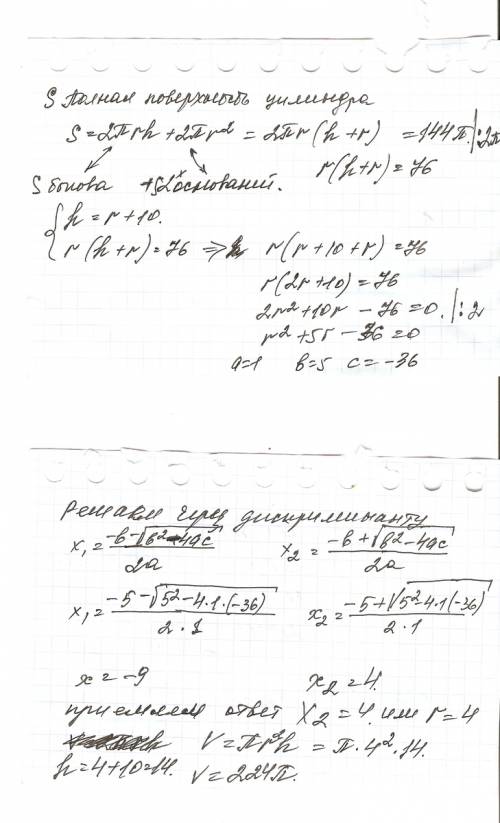 S Полная поверхность цилиндра
S = 2πrh + 2πr² = 2πr(h+r) = 144π |:2π
r(h+r) = 76
S бокова + S 2х оснований.
{ h = r + 10.
r(h+r) = 76 ⇒ r(r+10+r) = 76
r(2r+10) = 76
2r² + 10r − 76 = 0. |: 2
r² + 5r − 36 = 0
a=1 b=5 c= −36
Решаем через дискриминанту
x₁ = (−b−√(b²−4ac))/2a x₂ = (−b+√(b²−4ac))/2a
x₁ = (−5−√(5²−4·1·(−36)))/2·1 x₂ = (−5+√(5²−4·1(−36)))/2·1
x = −9 x₂ = 4.
приемлем ответ X₂ = 4. или r = 4
V = πr²h = π·4²·14.
h = 4+10=14. V = 224π.